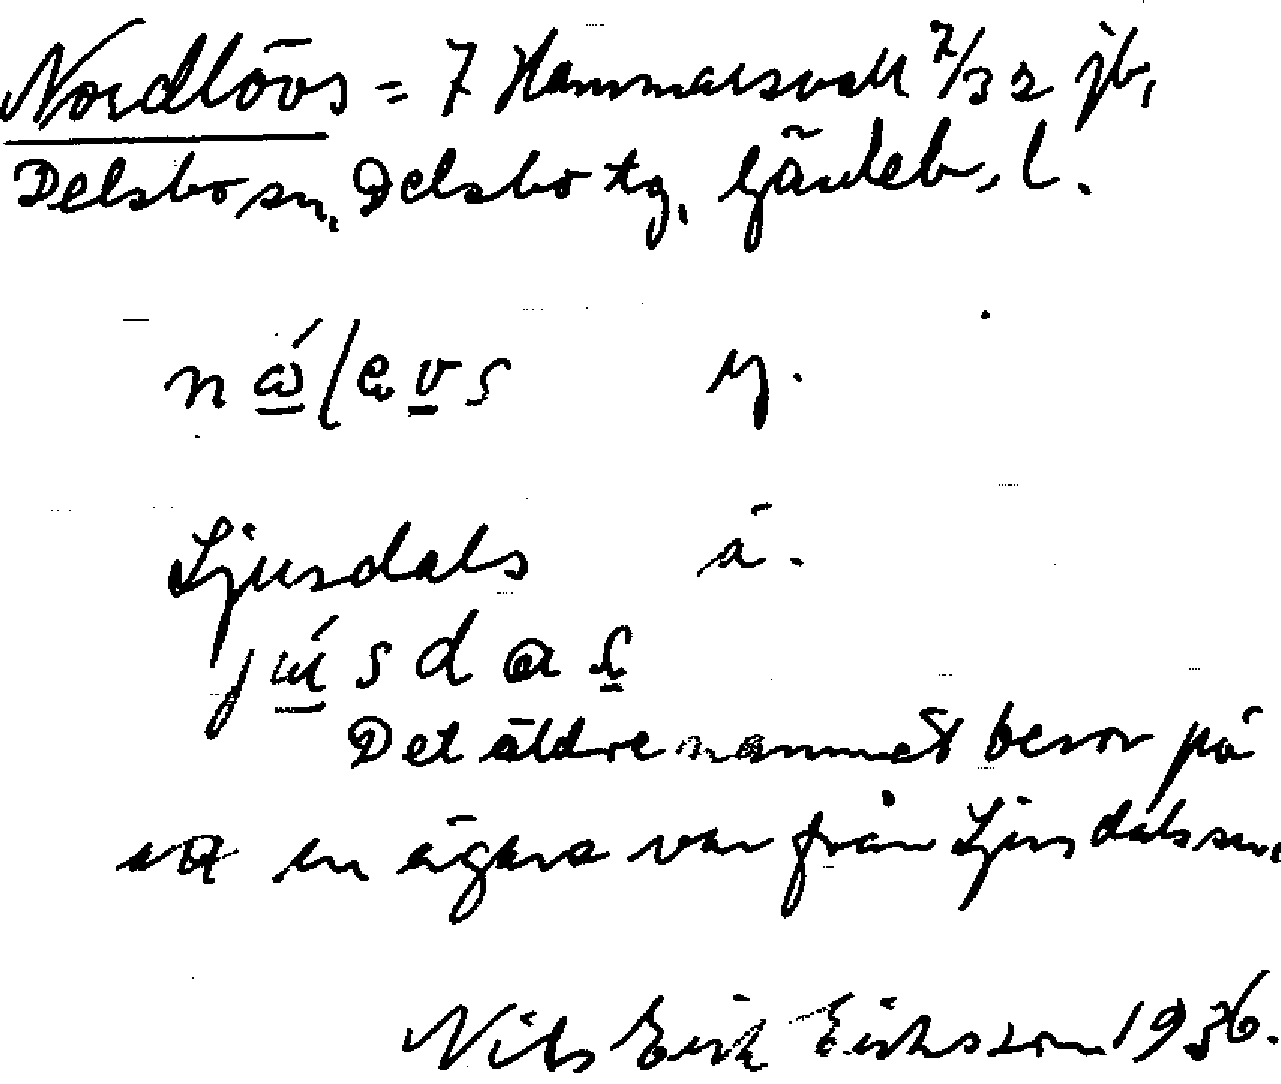 Nordlövs = 7 Hammarsvall 7/32 jb,
Delsbo sn, Delsbo tg, Gävleb. l.
y.
Ljusdals ä.
jusdas
Det äldre namnet beror på
att en ägare var från Ljusdals sn.
Nils Erik Eriksson 1936.